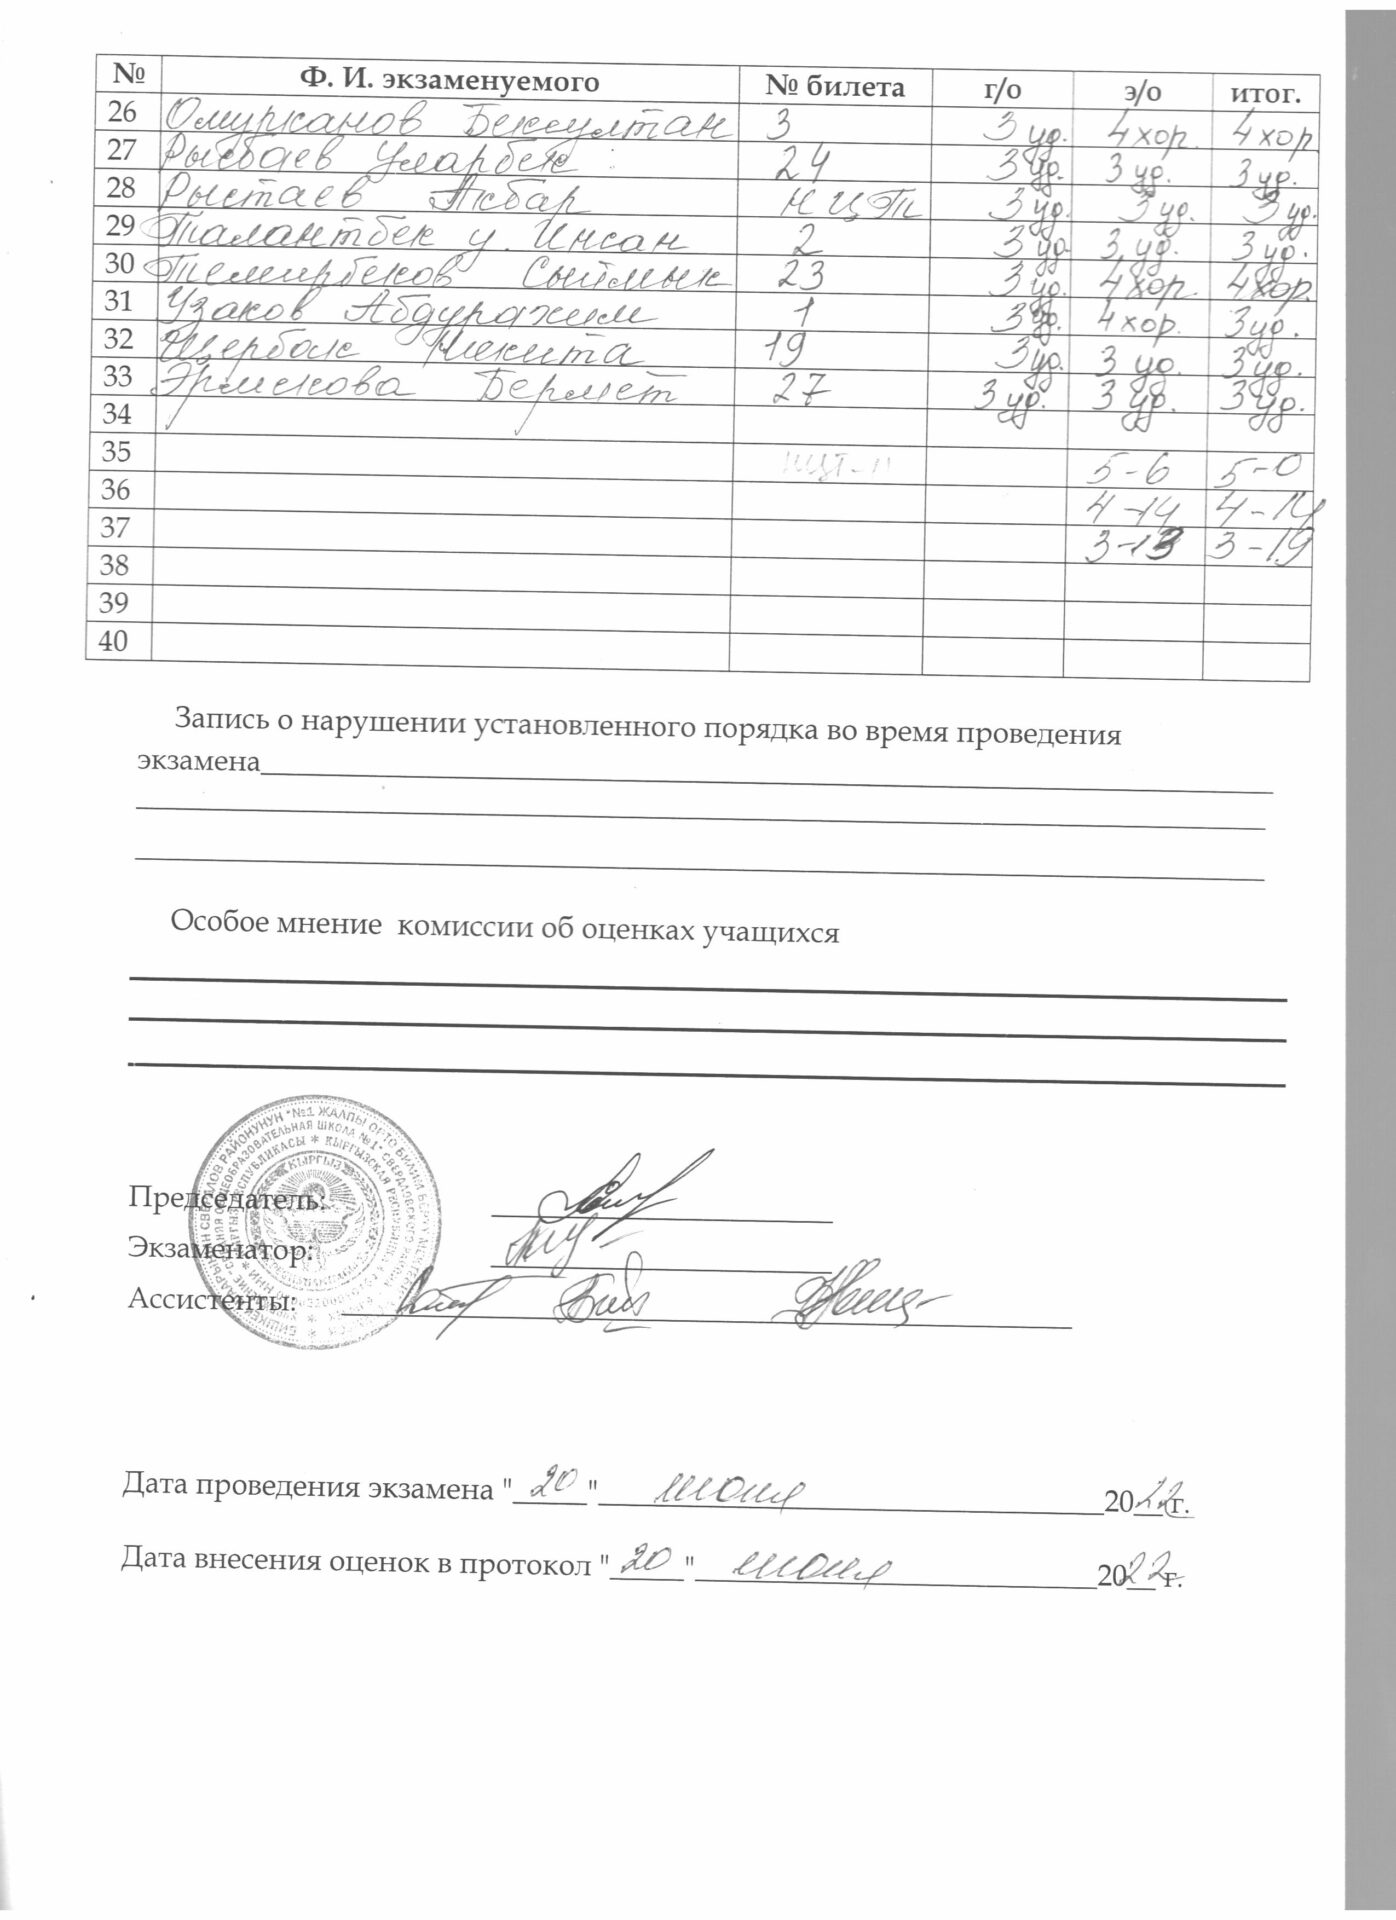 № Ф. И. экзаменуемого № билета г/о э/о итог.
26 Омурканов Бексултан 3 3 уд. 4 хор. 4 хор
27 Рысбаев Уларбек 24 3 уд. 3 уд. 3 уд.
28 Рыстаев Акбар НЦТ 3 уд. 3 уд. 3 уд.
29 Талантбек у. Инсан 2 3 уд. 3 уд. 3 уд.
30 Темирбеков Сыймык 23 3 уд. 4 хор. 4 хор.
31 Узаков Абдурахим 1 3 уд. 4 хор. 3 уд.
32 Щербак Никита 19 3 уд. 3 уд. 3 уд.
33 Эрмекова Бермет 27 3 уд. 3 уд. 3 уд.
34
35 НЦТ-11 5-6 5-0
36 4-14 4-14
37 3-13 3-19
38
39
40
Запись о нарушении установленного порядка во время проведения
экзамена
Особое мнение комиссии об оценках учащихся
Председатель:
Экзаменатор:
Ассистенты:
Дата проведения экзамена "20" июня 2022 г.
Дата внесения оценок в протокол "20" июня 2022 г.